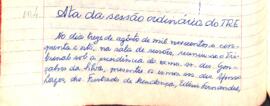 104.
Ata da sessão ordinária do TRE
No dia treze de agôsto de mil novecentos e cin-
quenta e oito, na sala de sessões, reuniu-se o Tri-
bunal sob a presidência do exmo. sr. des. Gon-
çalves da Silva, presentes os exmos. srs. des. Afonso
Lages, des. Furtado de Mendonça, Fernandes,